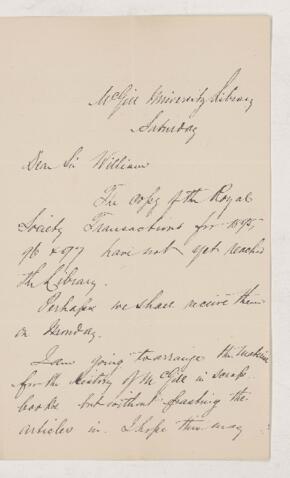 McGill University Library
Saturday
Dear Sir William
The copy of the Royal
Society Transactions for 1895,
96 & 97 have not yet reached
the Library.
Perhaps we shall receive them
on Monday.
I am going to arrange the material
for the History of McGill in scrap
books but without pasting the
articles in. I hope this may